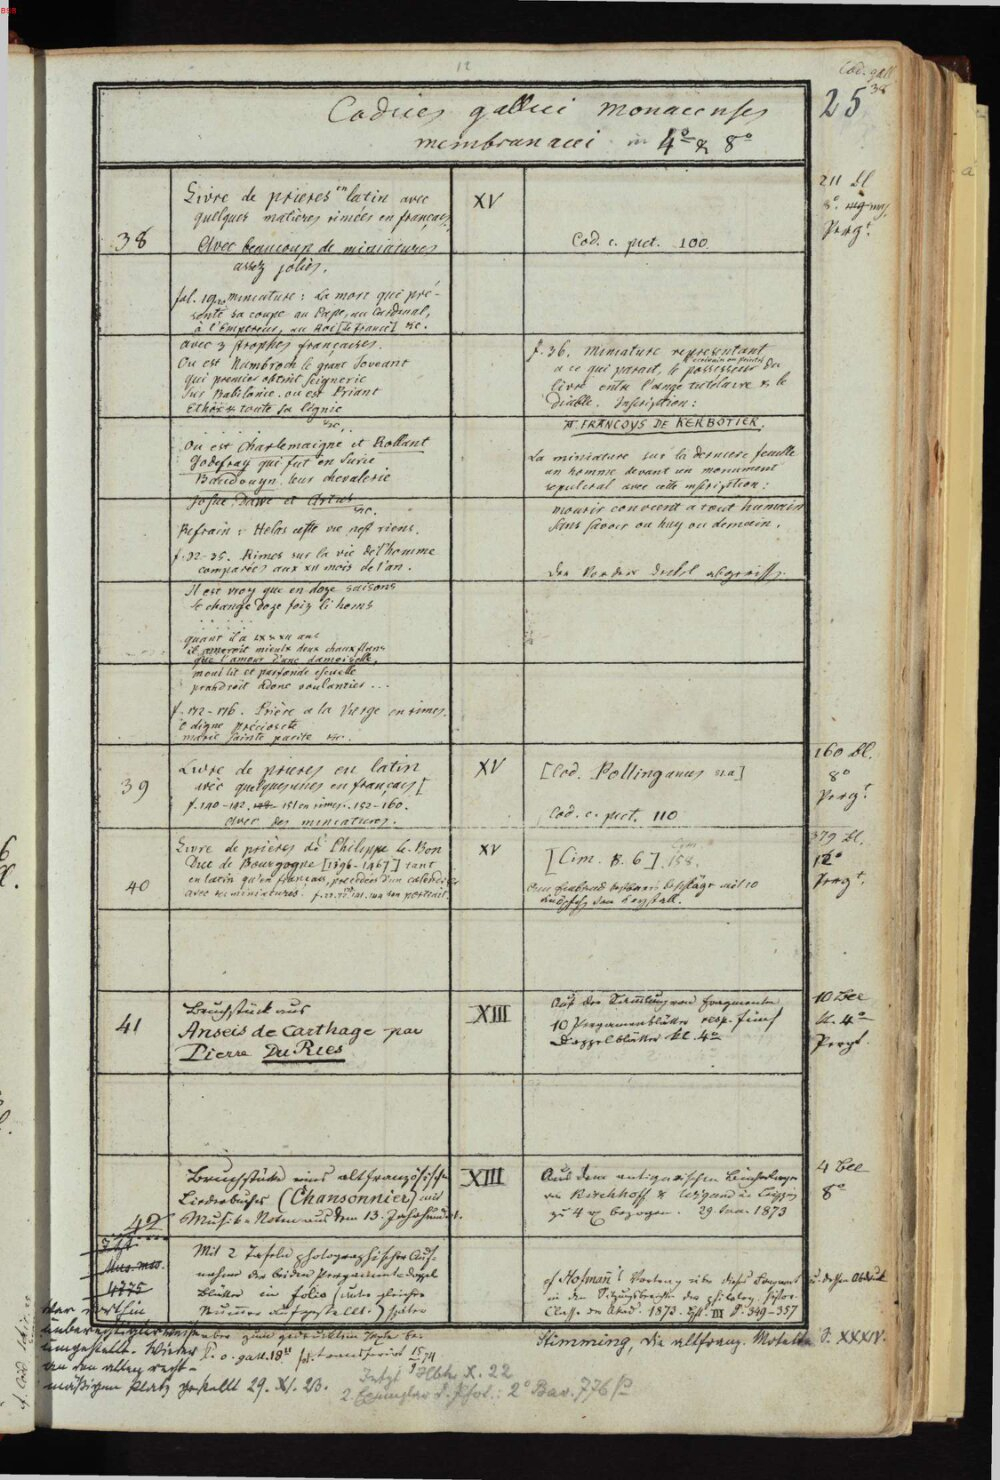 12
Cod. gall.
38
25
Codices gallici monacenses
membranacei in 4° & 8°
38
Livre de prieres en latin avec
quelques matières rimées en français.
Avec beaucoup de miniatures
assez jolies.
XV
Cod. c. pict. 100
211 Bl.
8°
Perg.
miniature: La mort qui pré-
sente sa coupe au Pape, au Cardinal,
à l'Empereur, au Roi [de France] &c.
avec 3 strophes françaises.
Ou est Nembroch le grant Joveant
qui premier obtint Seignerie
Sur Babilonie. ou est Priant
Ethor & toute sa lignie
&c.
Ou est Charlemaigne et Rollant
Godefray qui fut en Surie
Baudouyn, leur chevalerie
Josue, Davie et Artus
&c.
Refrain: Helas cette vie n'est riens.
f. 22-35. Rimes sur la vie de l'homme
comparées aux XII mois de l'an.
Il est vray que en doze saisons
se change doze foiz li homs
quant il a LX & XII ans
il ameroit mieulx deux chaux flans
que l'amour d'une damoiselle
moul lit et parfonde escuelle
prandroit adonc voulantiers ...
Prière a la Vierge en rimes.
o digne préciosité
marie sainte purité &c.
f. 36. miniature representant
a ce qui parait, le possesseur du
livre entre l'ange tutélaire & le
diable. Inscription:
FRANCOYS DE KERBOTIER.
La miniature sur la derniere feuille
un homme devant un monument
sepulcral avec cette inscription:
mourir convient a tout humain
sans savoir ou huy ou demain.
Der Vordere Deckel abgerissen.
39
Livre de prieres en latin
avec quelques unes en français [
f. 140-142. 151 en rimes. 152-160.
avec des miniatures.
XV
[Cod. Pollinganus]
Cod. c. pict. 110
160 Bl.
8°
Perg.
40
Livre de prières de Philippe le Bon
Duc de Bourgogne [1396-1467] tant
en latin qu'en français, précédées d'un calendrier
avec miniatures.
XV
[Cim. 8. 6] 158.
379 Bl.
12°
Perg.
41
Bruchstück aus
Anseis de Carthage par
Pierre Du Ries
XIII
Aus der Sammlung von Fragmenten
10 Pergamentblätter resp. fünf
Doppelblätter kl. 4°
10 Bll.
kl. 4°
Perg.
42
Bruchstücke eines altfranzösischen
Liederbuches (Chansonnier) mit
Musik-Noten aus dem 13. Jahrhundert.
XIII
Aus dem antiquarischen Bücherlager
von Kirchhoff & Wigand in Leipzig
zu 4 bezogen. 29. Jan. 1873
4 Bll.
8°
Mus. mss.
4775
Mit 2 Tafeln photographischer Auf-
nahme der beiden Pergament-Doppel
Blätter in folio (unter gleicher
Nummer aufgestellt.) später
cf Hofmann's Vortrag über dieses Fragment
in den Sitzungsberichten der philolog. histor.
Classe der Akad. 1873. Heft III S. 349-357
u. dessen Abdruck
Stimming, Die altfranz. Motette S. XXXIV.
war dorthin
umgestellt. Wieder
an den alten recht-
mäßigen Platz gestellt 29. XI. 23.
Jetzt Hbh. X. 22
2. Exemplar 2° Bav. 776